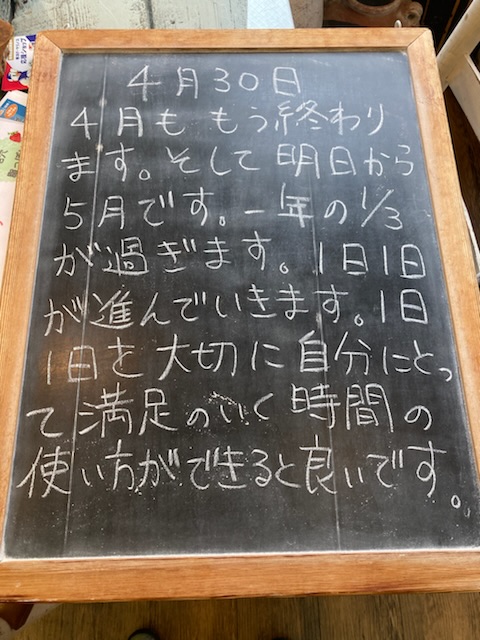 4月30日
4月ももう終わり
ます。そして明日から
5月です。一年の1/3
が過ぎます。1日1日
が進んでいきます。1日
1日を大切に自分にとっ
て満足のいく時間の
使い方ができると良いです。